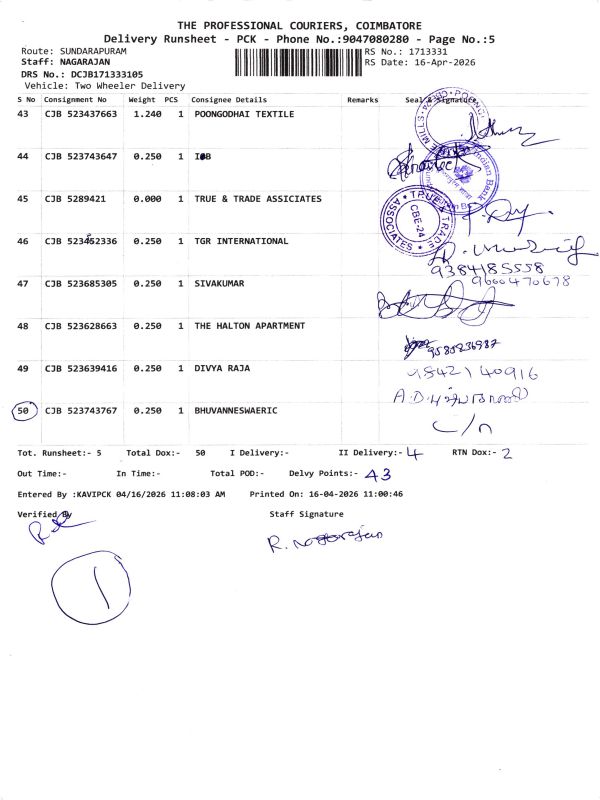 THE PROFESSIONAL COURIERS, COIMBATORE
Delivery Runsheet - PCK - Phone No.:9047080280 - Page No.:5
Route: SUNDARAPURAM RS No.: 1713331
Staff: NAGARAJAN RS Date: 16-Apr-2026
DRS No.: DCJB171333105
Vehicle: Two Wheeler Delivery
S No Consignment No Weight PCS Consignee Details Remarks Seal & Signature
43 CJB 523437663 1.240 1 POONGODHAI TEXTILE
44 CJB 523743647 0.250 1 IOB
Indian Bank
45 CJB 5289421 0.000 1 TRUE & TRADE ASSICIATES
TRUE & TRADE ASSOCIATES CBE-24
46 CJB 523452336 0.250 1 TGR INTERNATIONAL
9384185558
47 CJB 523685305 0.250 1 SIVAKUMAR
9600470678
48 CJB 523628663 0.250 1 THE HALTON APARTMENT
9585836987
49 CJB 523639416 0.250 1 DIVYA RAJA
9842140916
50 CJB 523743767 0.250 1 BHUVANNESWAERIC
C/n
Tot. Runsheet:- 5 Total Dox:- 50 I Delivery:- II Delivery:- 4 RTN Dox:- 2
Out Time:- In Time:- Total POD:- Delvy Points:- 43
Entered By :KAVIPCK 04/16/2026 11:08:03 AM Printed On: 16-04-2026 11:00:46
Verified By Staff Signature
R. Nagarajan
1